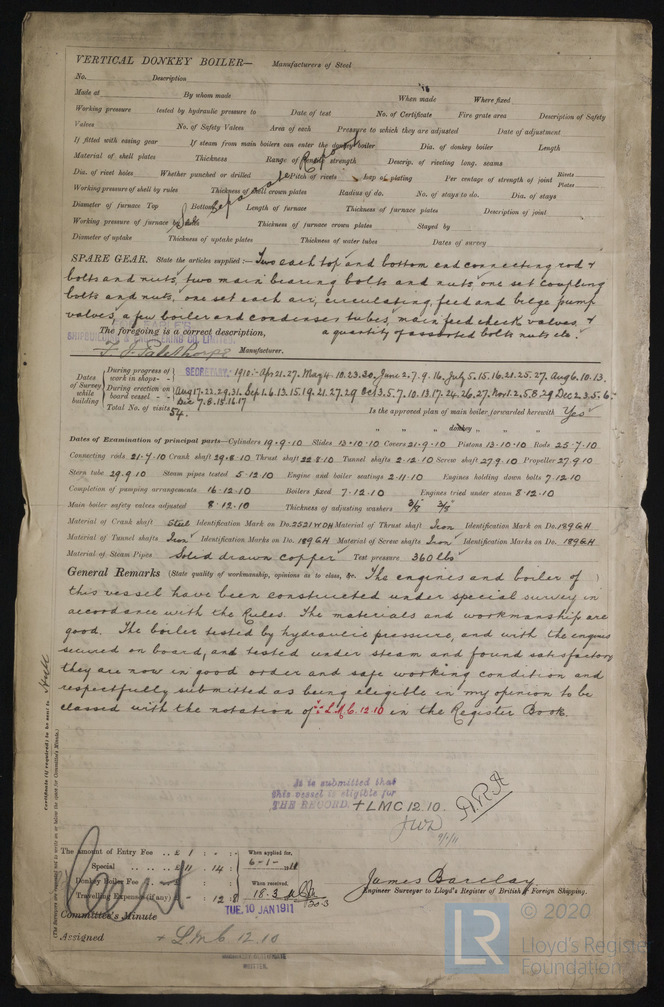 VERTICAL DONKEY BOILER— Manufacturers of Steel
No. Description
Made at By whom made When made Where fixed
Working pressure tested by hydraulic pressure to Date of test No. of Certificate Fire grate area Description of Safety
Valves No. of Safety Valves Area of each Pressure to which they are adjusted Date of adjustment
If fitted with easing gear If steam from main boilers can enter the donkey boiler Dia. of donkey boiler Length
Material of shell plates Thickness Range of tensile strength Descrip. of riveting long. seams
Dia. of rivet holes Whether punched or drilled Pitch of rivets Lap of plating Per centage of strength of joint Rivets Plates
Working pressure of shell by rules Thickness of shell crown plates Radius of do. No. of stays to do. Dia. of stays
Diameter of furnace Top Bottom Length of furnace Thickness of furnace plates Description of joint
Working pressure of furnace by rules Thickness of furnace crown plates Stayed by
Diameter of uptake Thickness of uptake plates Thickness of water tubes Dates of survey
See Separate Report
SPARE GEAR. State the articles supplied:— Two each top and bottom end connecting rod &
bolts and nuts, two main bearing bolts and nuts, one set coupling
bolts and nuts, one set each air, circulating, feed and bilge pump
valves, a few boiler and condenser tubes, main feed check valves &
The foregoing is a correct description, a quantity of assorted bolts nuts etc.
SHIPBUILDING & ENGINEERING CO. LIMITED.
Manufacturer.
SECRETARY.
Dates of Survey while building
During progress of work in shops - - 1910:- Apr 21. 27. May 4. 10. 23. 30. June 2. 7. 9. 16. July 5. 15. 16. 21. 25. 27. Aug 6. 10. 13.
During erection on board vessel - - Aug 17. 22. 29. 31. Sep 1. 6. 13. 15. 19. 21. 27. 29. Oct 3. 5. 7. 10. 13. 17. 24. 26. 27. Nov 1. 2. 5. 8. 29. Dec 2. 3. 5. 6.
Dec 7. 8. 15. 16. 17
Total No. of visits 54. Is the approved plan of main boiler forwarded herewith Yes
" " " donkey " " "
Dates of Examination of principal parts—Cylinders 19.9.10 Slides 13.10.10 Covers 21.9.10 Pistons 13.10.10 Rods 25.7.10
Connecting rods 21.7.10 Crank shaft 29.8.10 Thrust shaft 22.8.10 Tunnel shafts 2.12.10 Screw shaft 27.9.10 Propeller 27.9.10
Stern tube 29.9.10 Steam pipes tested 5.12.10 Engine and boiler seatings 2.11.10 Engines holding down bolts 7.12.10
Completion of pumping arrangements 16.12.10 Boilers fixed 7.12.10 Engines tried under steam 8.12.10
Main boiler safety valves adjusted 8.12.10 Thickness of adjusting washers 3/8 3/8
Material of Crank shaft Steel Identification Mark on Do. 2521WDH Material of Thrust shaft Iron Identification Mark on Do. 189GH
Material of Tunnel shafts Iron Identification Marks on Do. 189GH Material of Screw shafts Iron Identification Marks on Do. 189GH
Material of Steam Pipes Solid drawn copper Test pressure 360 lbs
General Remarks (State quality of workmanship, opinions as to class, &c. The engines and boiler of
this vessel have been constructed under special survey in
accordance with the Rules. The materials and workmanship are
good. The boiler tested by hydraulic pressure, and with the engines
secured on board, and tested under steam and found satisfactory
they are now in good order and safe working condition and
respectfully submitted as being eligible in my opinion to be
classed with the notation of + L.M.C. 12.10 in the Register Book.
Certificate (if required) to be sent to Hull
(The Surveyors are requested not to write on or below the space for Committee's Minute.)
It is submitted that
this vessel is eligible for
THE RECORD. + LMC 12.10.
9/1/11
The amount of Entry Fee .. £ 1 : - : When applied for,
Special .. .. £ 11 : 14 : 6-1- 1911
Donkey Boiler Fee .. £ : : When received,
Travelling Expenses (if any) £ : 12. 8 18.3
James Barclay
Engineer Surveyor to Lloyd's Register of British & Foreign Shipping.
TUE. 10 JAN 1911
Committee's Minute
Assigned + L.M.C 12.10
WRITTEN.
LR
© 2020
Lloyd's Register
Foundation